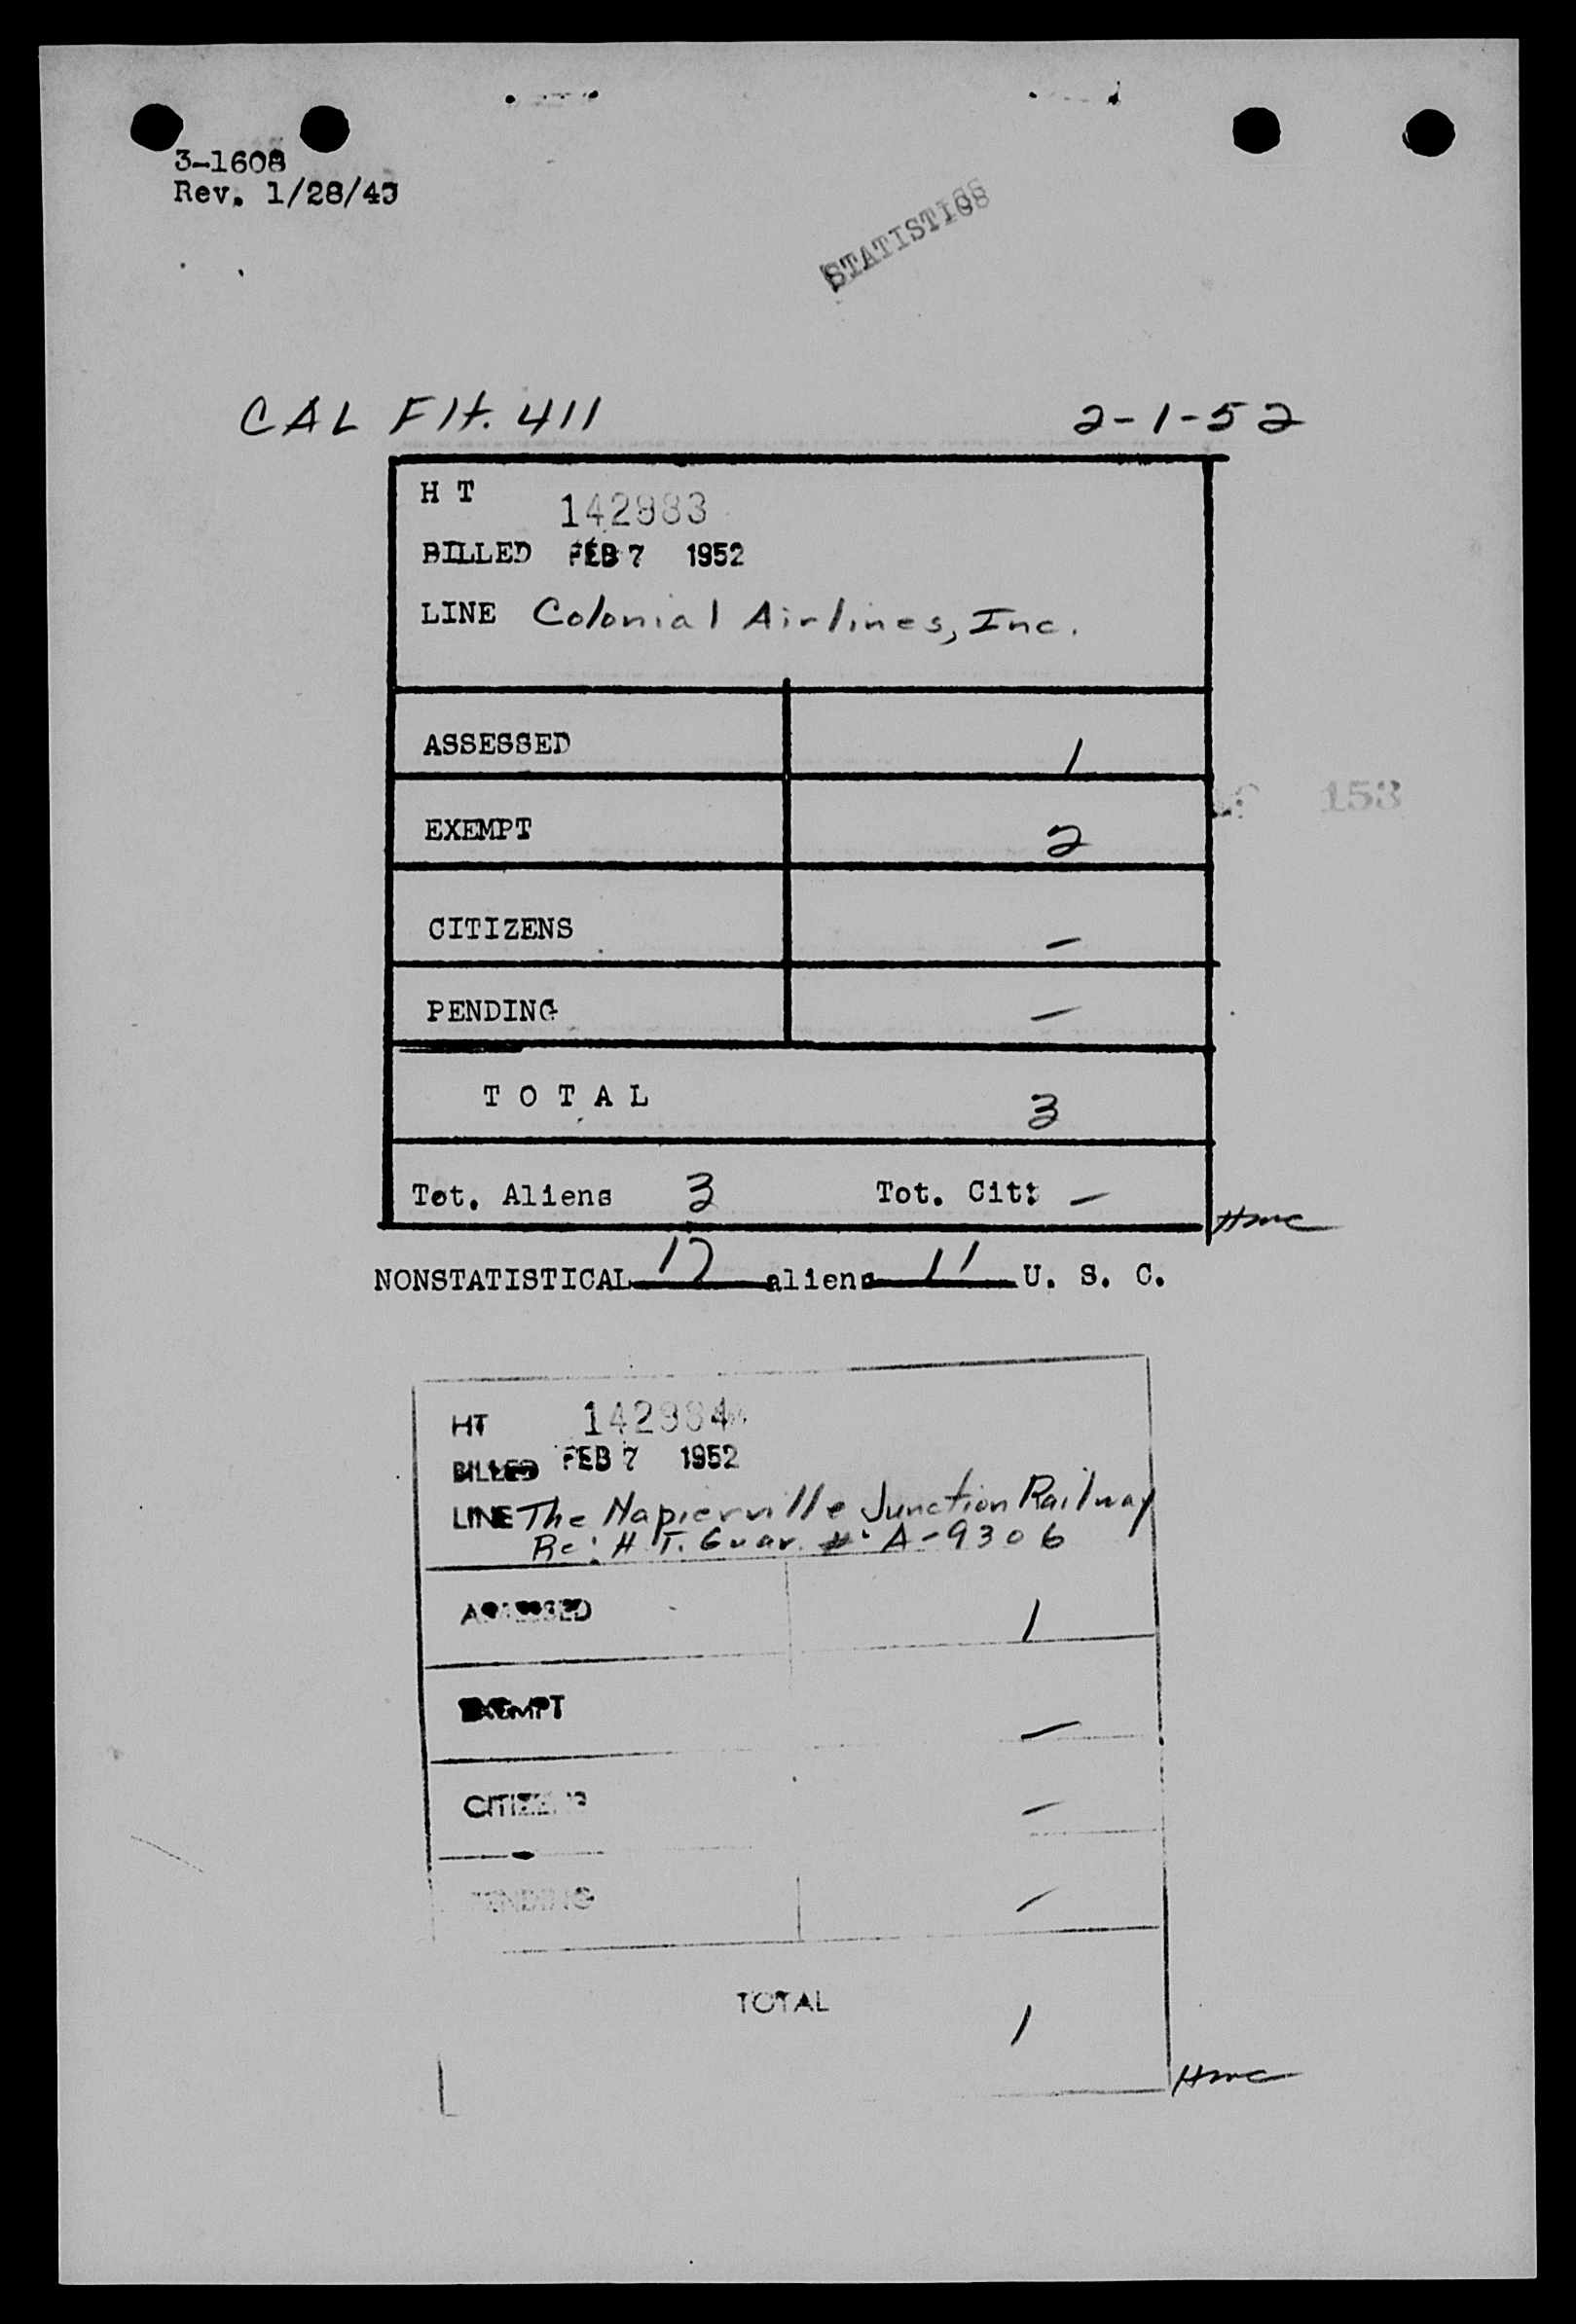 3-1608
Rev. 1/28/43
STATISTICS
CAL Flt. 411 2-1-52
H T 142983
BILLED FEB 7 1952
LINE Colonial Airlines, Inc.
ASSESSED 1
153
EXEMPT 2
CITIZENS -
PENDING -
TOTAL 3
Tot. Aliens 3 Tot. Cit: -
HMC
NONSTATISTICAL 17 aliens 11 U. S. C.
HT 142984
BILLED FEB 7 1952
LINE The Napierville Junction Railway
Re: H.T. Guar. # A-9306
ASSESSED 1
EXEMPT -
CITIZENS -
PENDING -
TOTAL 1
HMC